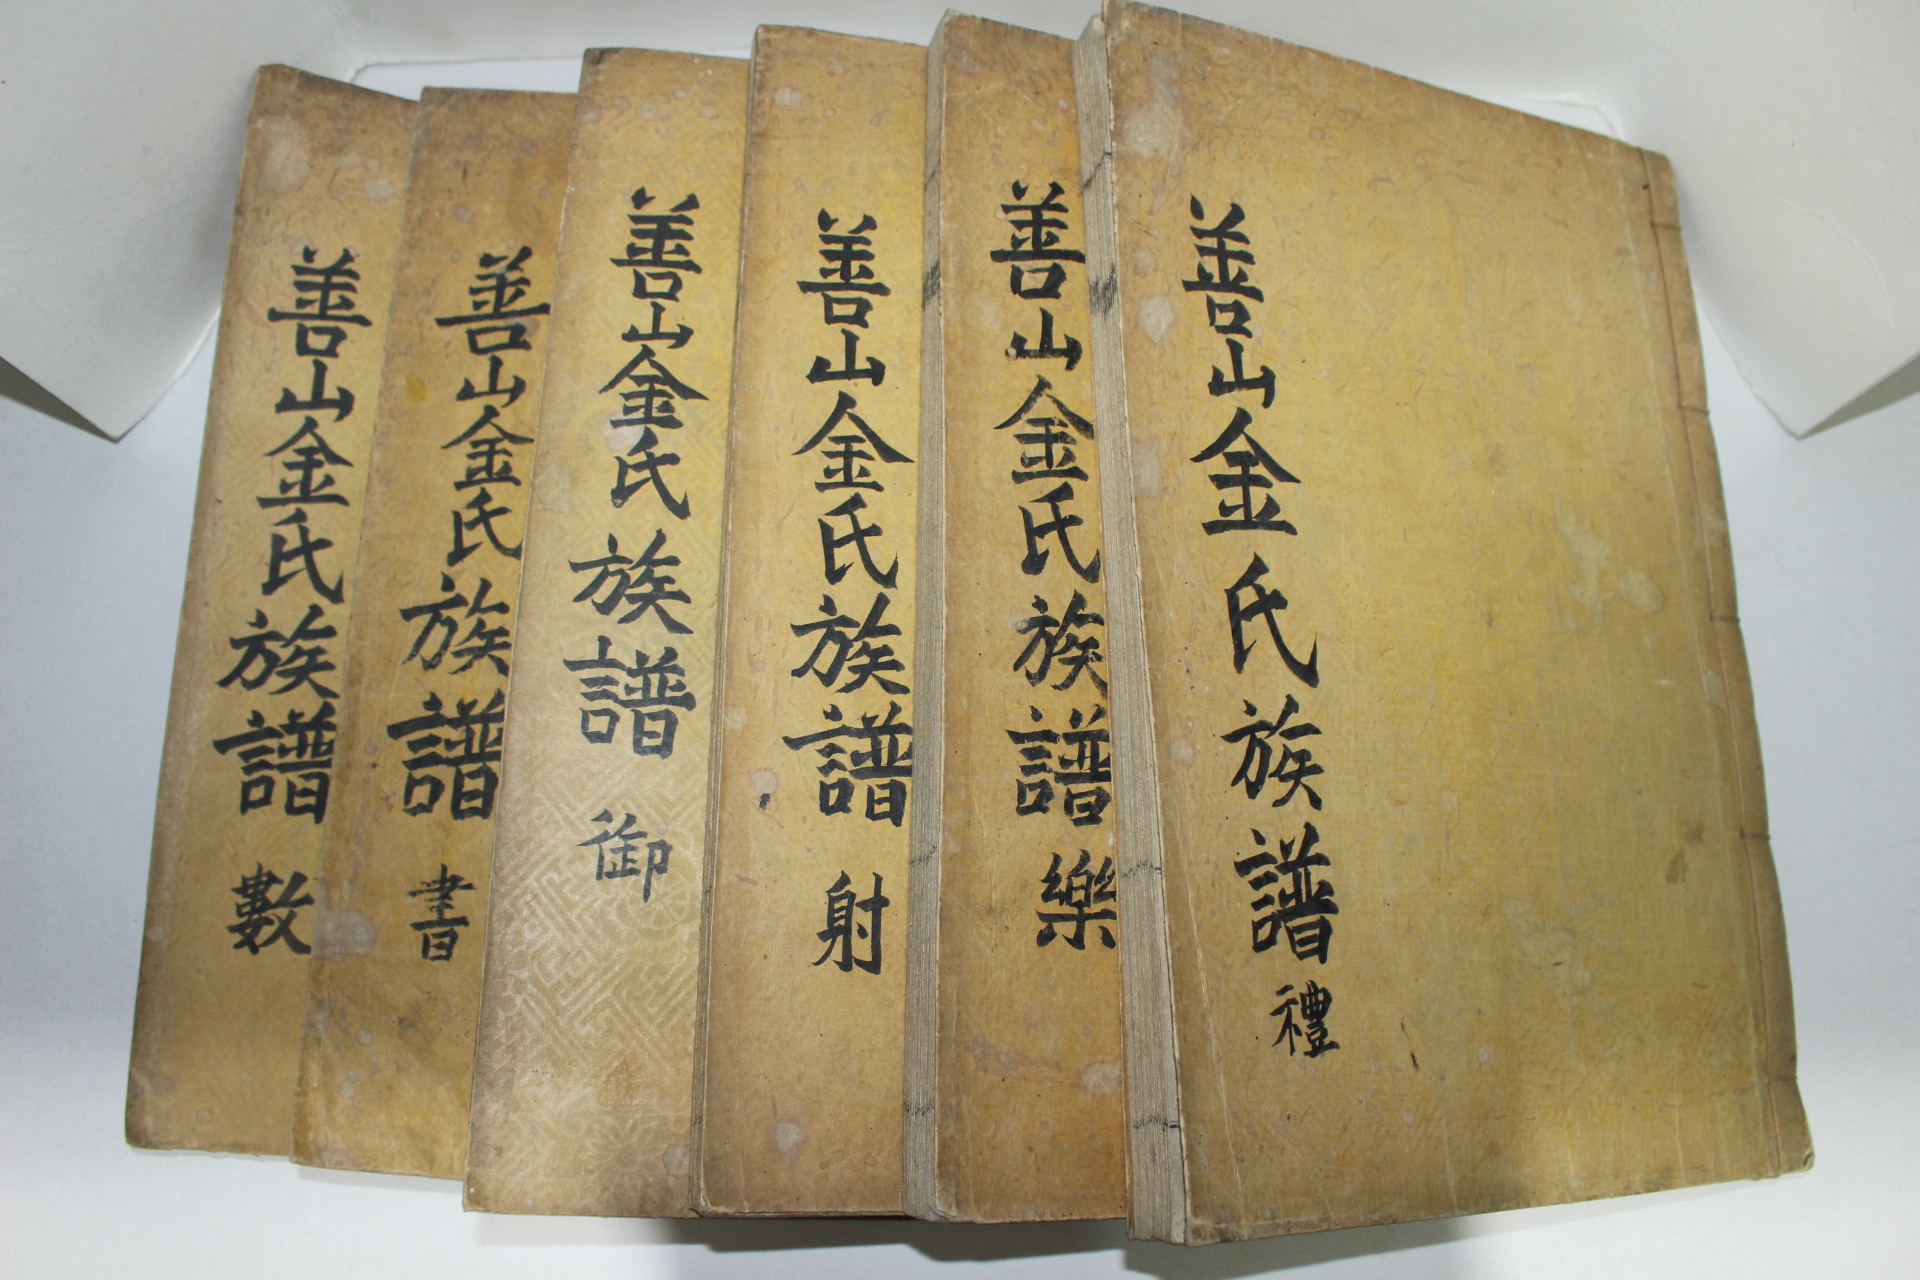 善山金氏族譜 禮
善山金氏族譜 樂
善山金氏族譜 射
善山金氏族譜 御
善山金氏族譜 書
善山金氏族譜 數